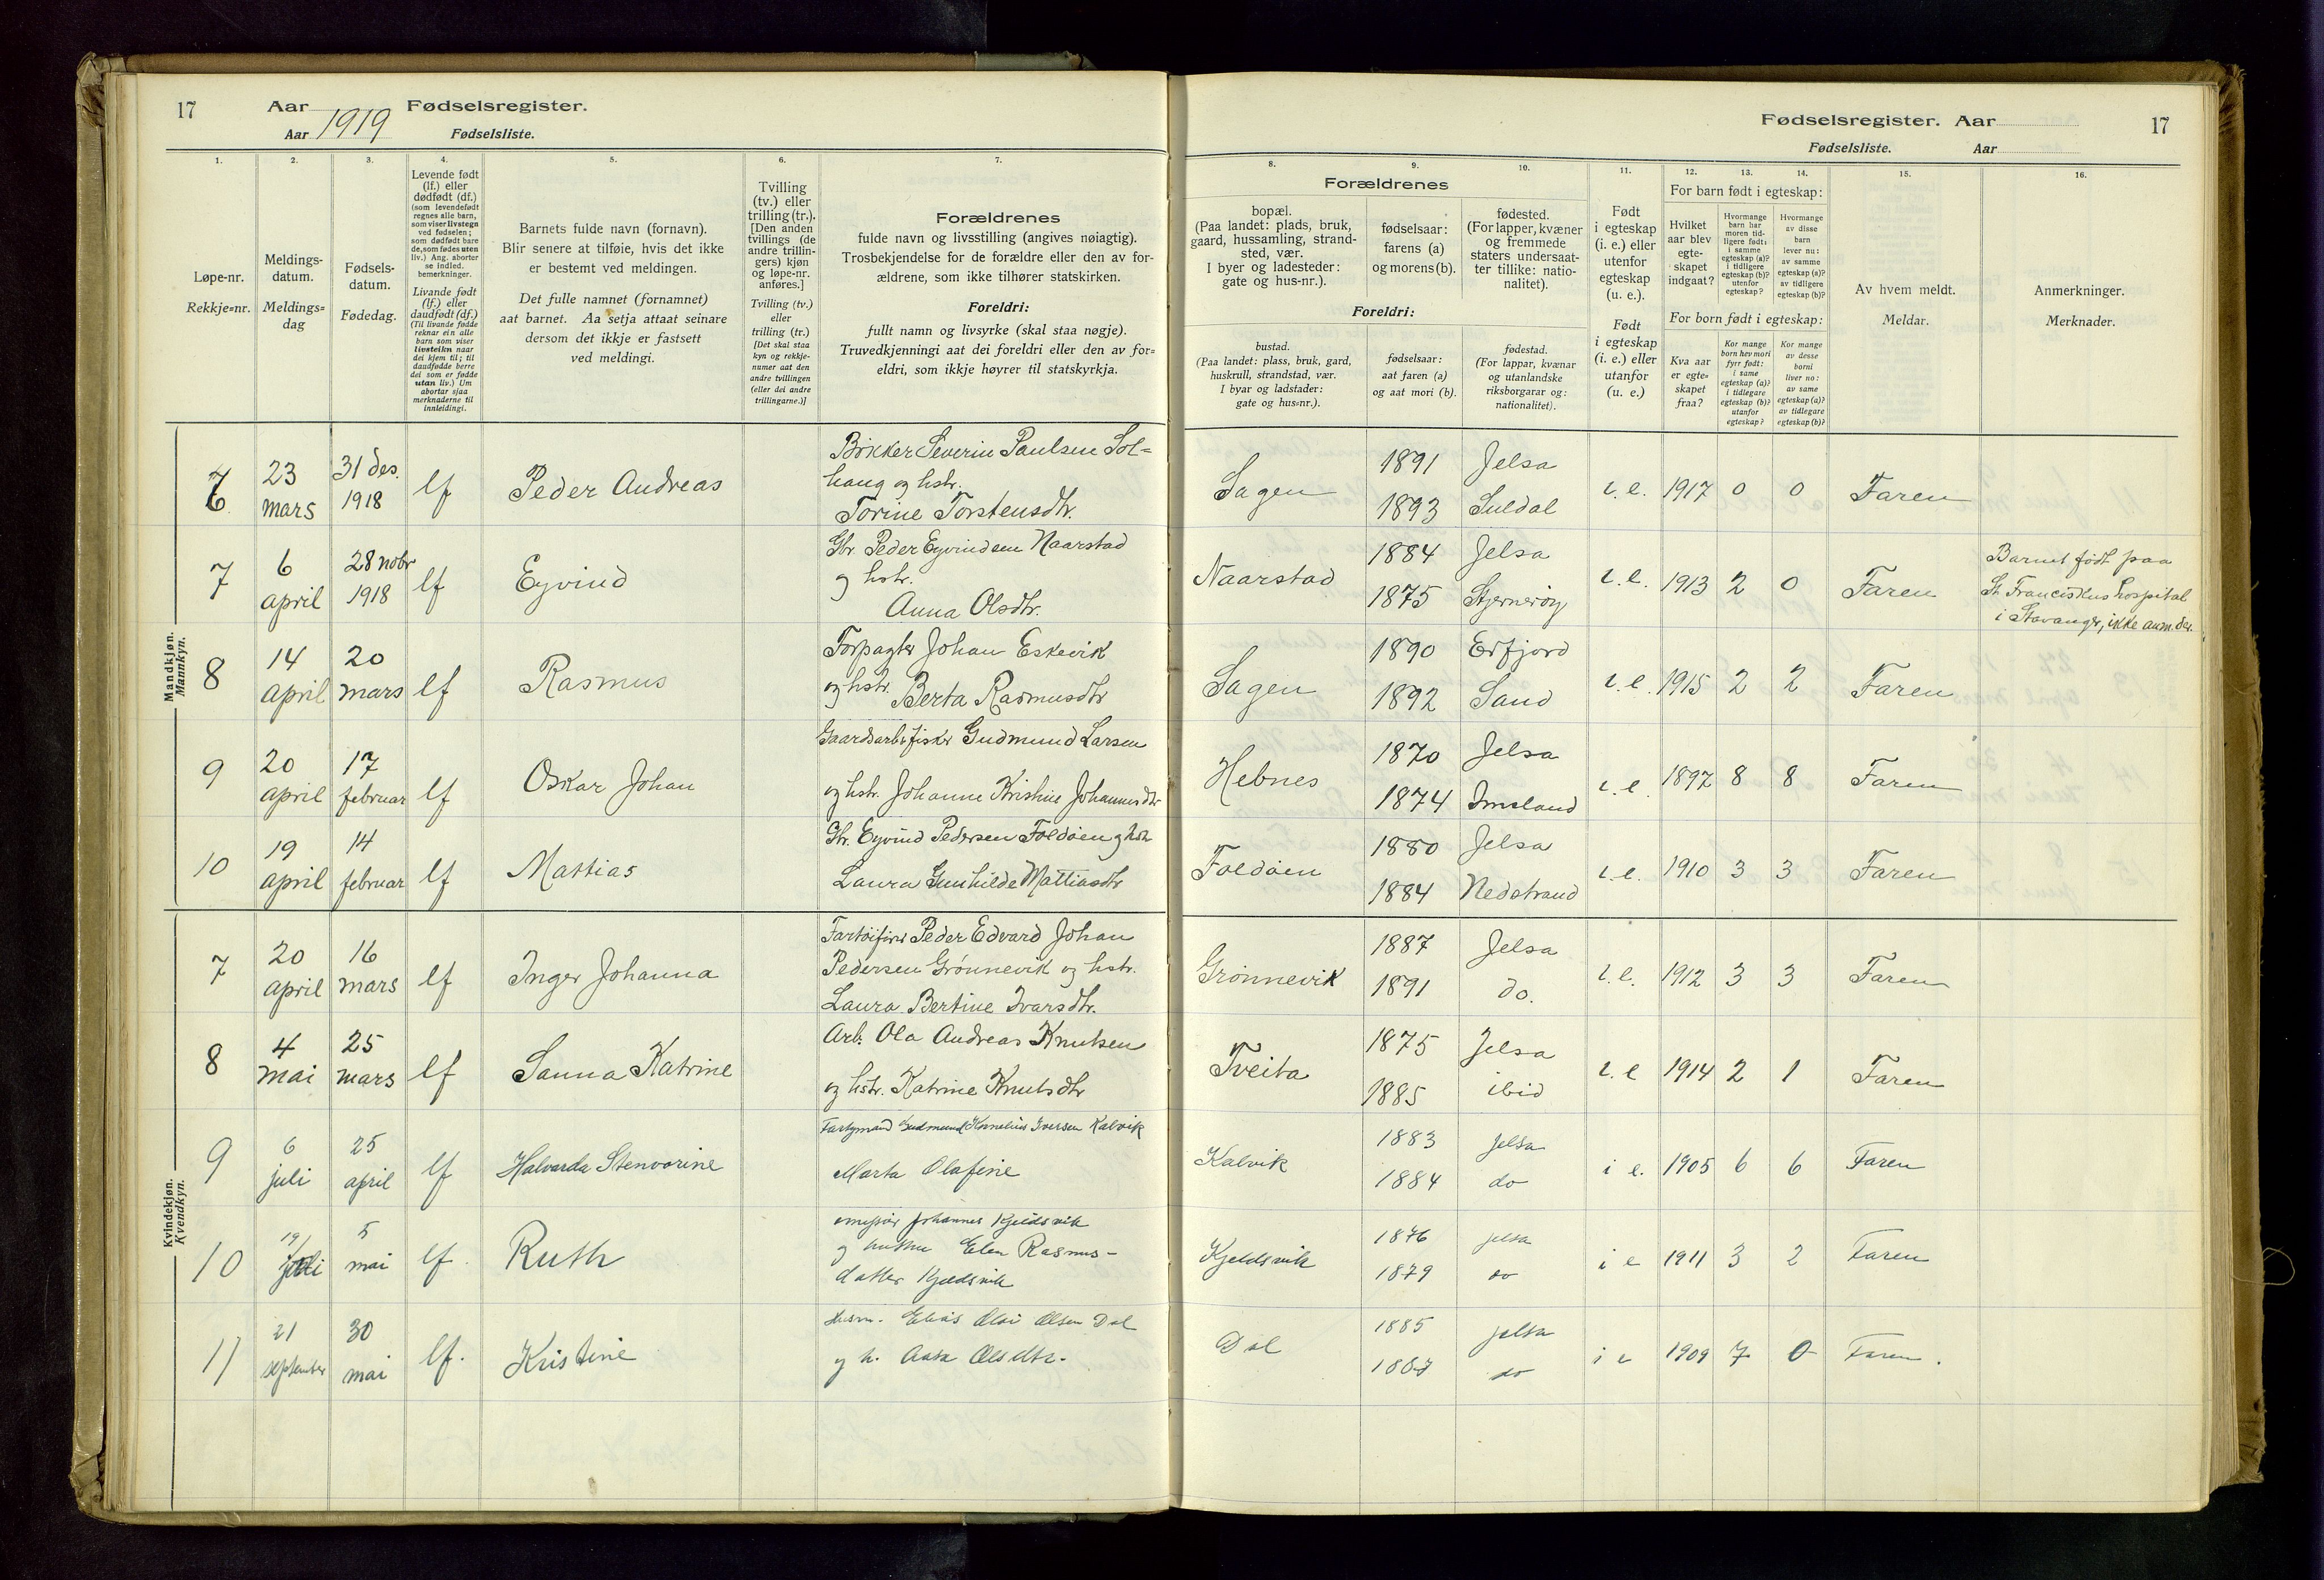 17 Aar 1919 Fødselsregister.
Aar Fødselsliste.
1.
2.
3.
4.
5.
6.
7.
Løpe-nr.
Rekkje=nr.
Meldings-
datum.
Meldings=
dag
Fødsels-
datum.
Fødedag.
Levende født
(lf.) eller
dødfødt (df.)
(som levendefødt
regnes alle barn,
som viser livstegn
ved fødselen;
som dødfødt bare
de, som fødes uten
liv.) Ang. aborter
se indled.
bemerkninger.
Livande født
(lf.) eller
daudfødt (df.)
(Til livande fødde
reknar ein alle
barn som viser
livsteikn naar
dei kjem til; til
daudfødde berre
dei som er fødde
utan liv.) Um
abortar sjaa
merknaderne til
innleidingi.
Barnets fulde navn (fornavn).
Blir senere at tilføie, hvis det ikke
er bestemt ved meldingen.
Det fulle namnet (fornamnet)
aat barnet. Aa setja attaat seinare
dersom det ikkje er fastsett
ved meldingi.
Tvilling
(tv.) eller
trilling (tr.).
[Den anden
tvillings (de
andre trillin-
gers) kjøn
og løpe-nr.
anføres.]
Tvilling (tv.)
eller
trilling (tr.)
[Det skal staa
kyn og rekkje-
numer aat den
andre tvillingen
(eller dei andre
trillingarne.)]
Forældrenes
fulde navn og livsstilling (angives nøiagtig).
Trosbekjendelse for de forældre eller den av for-
ældrene, som ikke tilhører statskirken.
Foreldri:
fullt namn og livsyrke (skal staa nøgje).
Truvedkjenningi aat dei foreldri eller den av for=
eldri, som ikkje høyrer til statskyrkja.
Mandkjøn.
Mannkyn.
6
23
mars
31 des.
1918
lf
Peder Andreas
Bøkker Severin Paulsen Sol=
haug og hstr.
Torine Torstensdtr.
7
6
april
28 nobr
1918
lf
Eyvind
Gbr. Peder Eyvindsen Naarstad
og hstr.
Anna Olsdtr.
8
14
april
20
mars
lf
Rasmus
Forpagter Johan Eskevik
og hstr. Berta Rasmusdtr
9
20
april
17
februar
lf
Oskar Johan
Gaardsarb. & fisker Gudmund Larsen
og hstr. Johanne Kristine Johannesdtr
10
19
april
14
februar
lf
Mattias
Gbr. Eyvind Pedersen Foldøen og hstr
Laura Gunhilde Mattiasdtr
Kvindekjøn.
Kvendkyn.
7
20
april
16
mars
lf
Inger Johanna
Fartøifører Peder Edvard Johan
Pedersen Grønnevik og hstr.
Laura Bertine Ivarsdtr.
8
4
mai
25
mars
lf
Sanna Katrine
Arb. Ola Andreas Knutsen
og hstr. Katrine Knutsdtr
9
6
juli
25
april
lf
Halvarda Stenvorine
Gudmund Kornelius Iversen Kalvik
Marta Olafine
10
19/
juli
5
mai
lf.
Ruth
Johannes Kjeldsvik
og hustru Elen Rasmus-
datter Kjeldsvik
11
21
september
30
mai
lf.
Kristine
Husm. Elias Olai Olsen Dal
og h. Aasa Olsdtr.
Fødselsregister. Aar 17
Fødselsliste. Aar
8.
9.
10.
11.
12.
13.
14.
15.
16.
Forældrenes
bopæl.
(Paa landet: plads, bruk,
gaard, hussamling, strand-
sted, vær.
I byer og ladesteder:
gate og hus-nr.).
fødselsaar:
farens (a)
og morens (b).
fødested.
(For lapper, kvæner
og fremmede
staters undersaat-
ter tillike: natio-
nalitet).
Foreldri:
bustad.
(Paa landet: plass, bruk, gard,
huskrull, strandstad, vær.
I byar og ladstader:
gate og hus=nr.).
fødselsaar:
aat faren (a)
og aat mori (b).
fødestad.
(For lappar, kvænar
og utanlandske
riksborgarar og:
nationalitet).
Født
i egteskap
(i. e.) eller
utenfor
egteskap
(u. e.).
Født
i egteskap
(i. e.) eller
utanfor
egteskap
(u. e.)
For barn født i egteskap:
Hvilket
aar blev
egte-
skapet
indgaat?
Hvormange
barn har
moren tid-
ligere født:
i samme
egteskap (a)?
i tidligere
egteskap (b)?
utenfor
egteskap?
Hvormange
av disse
barn
lever nu:
av samme
egteskap (a)?
av tidligere
egteskap (b)?
For born født i egteskap:
Kva aar
er egte-
skapet
fraa?
Kor mange
born hev mori
fyrr født:
i same
egteskap (a)?
i tidlegare
egteskap (b)?
utanfor
egteskap?
Kor mange
av desse
borni
liver no:
av same
egteskap (a)?
av tidlegare
egteskap (b)?
Av hvem meldt.
Meldar.
Anmerkninger.
Merknader.
Sagen
1891
1893
Jelsa
Suldal
i. e. 1917 0 0 Faren
Naarstad
1884
1875
Jelsa
Stjernerøy
i. e. 1913 2 0 Faren
Barnet født paa
St. Franciskus hospital
i Stavanger, ikke anm. der.
Sagen
1890
1892
Erfjord
Sand
i. e. 1915 2 2 Faren
Hebnes
1870
1874
Jelsa
Imsland
i. e. 1897 8 8 Faren
Foldøen
1880
1884
Jelsa
Nedstrand
i. e. 1910 3 3 Faren
Grønnevik
1887
1891
Jelsa
do.
i. e. 1912 3 3 Faren
Tveita
1875
1885
Jelsa
ibid
i. e 1914 2 1 Faren
Kalvik
1883
1884
Jelsa
do
i e. 1905 6 6 Faren
Kjeldsvik
1876
1879
Jelsa
do
i e 1911 3 2 Faren
Dal
1885
Jelsa
do
i e 1909 7 0 Faren.